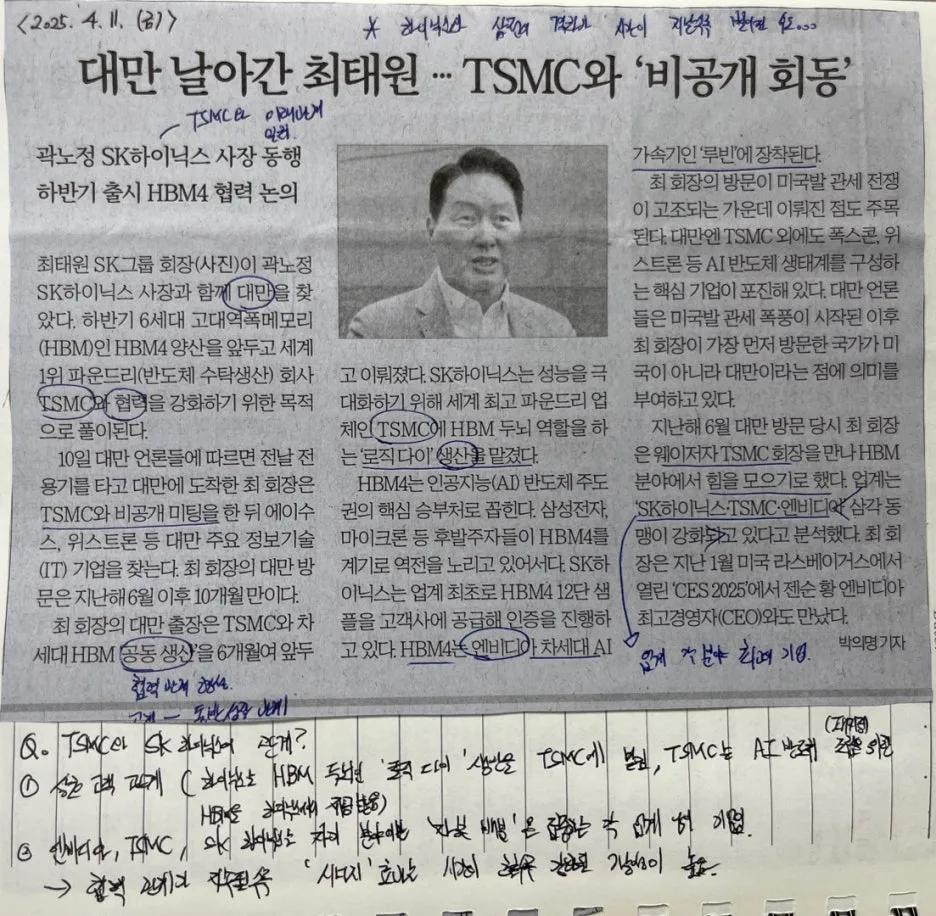 <2025. 4. 11. (금)>
* 하이닉스와 삼전의 격차가 시간이 지날수록 벌어질 수도...
대만 날아간 최태원 … TSMC와 ‘비공개 회동’
TSMC와
곽노정 SK하이닉스 사장 동행
하반기 출시 HBM4 협력 논의
최태원 SK그룹 회장(사진)이 곽노정
SK하이닉스 사장과 함께 대만을 찾
았다. 하반기 6세대 고대역폭메모리
(HBM)인 HBM4 양산을 앞두고 세계
1위 파운드리(반도체 수탁생산) 회사
TSMC와 협력을 강화하기 위한 목적
으로 풀이된다.
10일 대만 언론들에 따르면 전날 전
용기를 타고 대만에 도착한 최 회장은
TSMC와 비공개 미팅을 한 뒤 에이수
스, 위스트론 등 대만 주요 정보기술
(IT) 기업을 찾는다. 최 회장의 대만 방
문은 지난해 6월 이후 10개월 만이다.
최 회장의 대만 출장은 TSMC와 차
세대 HBM ‘공동 생산’을 6개월여 앞두
고 이뤄졌다. SK하이닉스는 성능을 극
대화하기 위해 세계 최고 파운드리 업
체인 TSMC에 HBM 두뇌 역할을 하
는 ‘로직 다이’ 생산을 맡겼다.
HBM4는 인공지능(AI) 반도체 주도
권의 핵심 승부처로 꼽힌다. 삼성전자,
마이크론 등 후발주자들이 HBM4를
계기로 역전을 노리고 있어서다. SK하
이닉스는 업계 최초로 HBM4 12단 샘
플을 고객사에 공급해 인증을 진행하
고 있다. HBM4는 엔비디아 차세대 AI
가속기인 ‘루빈’에 장착된다.
최 회장의 방문이 미국발 관세 전쟁
이 고조되는 가운데 이뤄진 점도 주목
된다. 대만엔 TSMC 외에도 폭스콘, 위
스트론 등 AI 반도체 생태계를 구성하
는 핵심 기업이 포진해 있다. 대만 언론
들은 미국발 관세 폭풍이 시작된 이후
최 회장이 가장 먼저 방문한 국가가 미
국이 아니라 대만이라는 점에 의미를
부여하고 있다.
지난해 6월 대만 방문 당시 최 회장
은 웨이저자 TSMC 회장을 만나 HBM
분야에서 힘을 모으기로 했다. 업계는
‘SK하이닉스·TSMC·엔비디아’ 삼각 동
맹이 강화되고 있다고 분석했다. 최 회
장은 지난 1월 미국 라스베이거스에서
열린 ‘CES 2025’에서 젠슨 황 엔비디아
최고경영자(CEO)와도 만났다.
박의명 기자
업계 각 분야 최고의 기업.
협력 관계 형성.
Q. TSMC와 SK 하이닉스의 관계?
① 상호 고객 관계 (하이닉스는 HBM 두뇌인 '로직 다이' 생산을 TSMC에 맡김, TSMC는 AI 반도체 조립을 위한
HBM을 하이닉스에서 공급받음)
② 엔비디아, TSMC, SK 하이닉스는 각 업계 1위 기업.
→ 협력 관계가 지속될수록 '시너지' 효과는 시간이 갈수록 가능성이 높음.